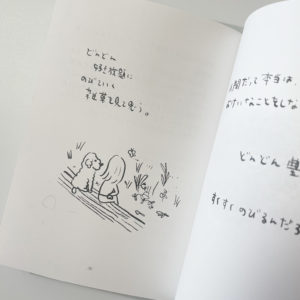 どんどん
好き放題に
のびていく
雑草を見て思う。
間だって本当は、
みたいなことをしな
どんどん 豊
すくすくのびるんだろ